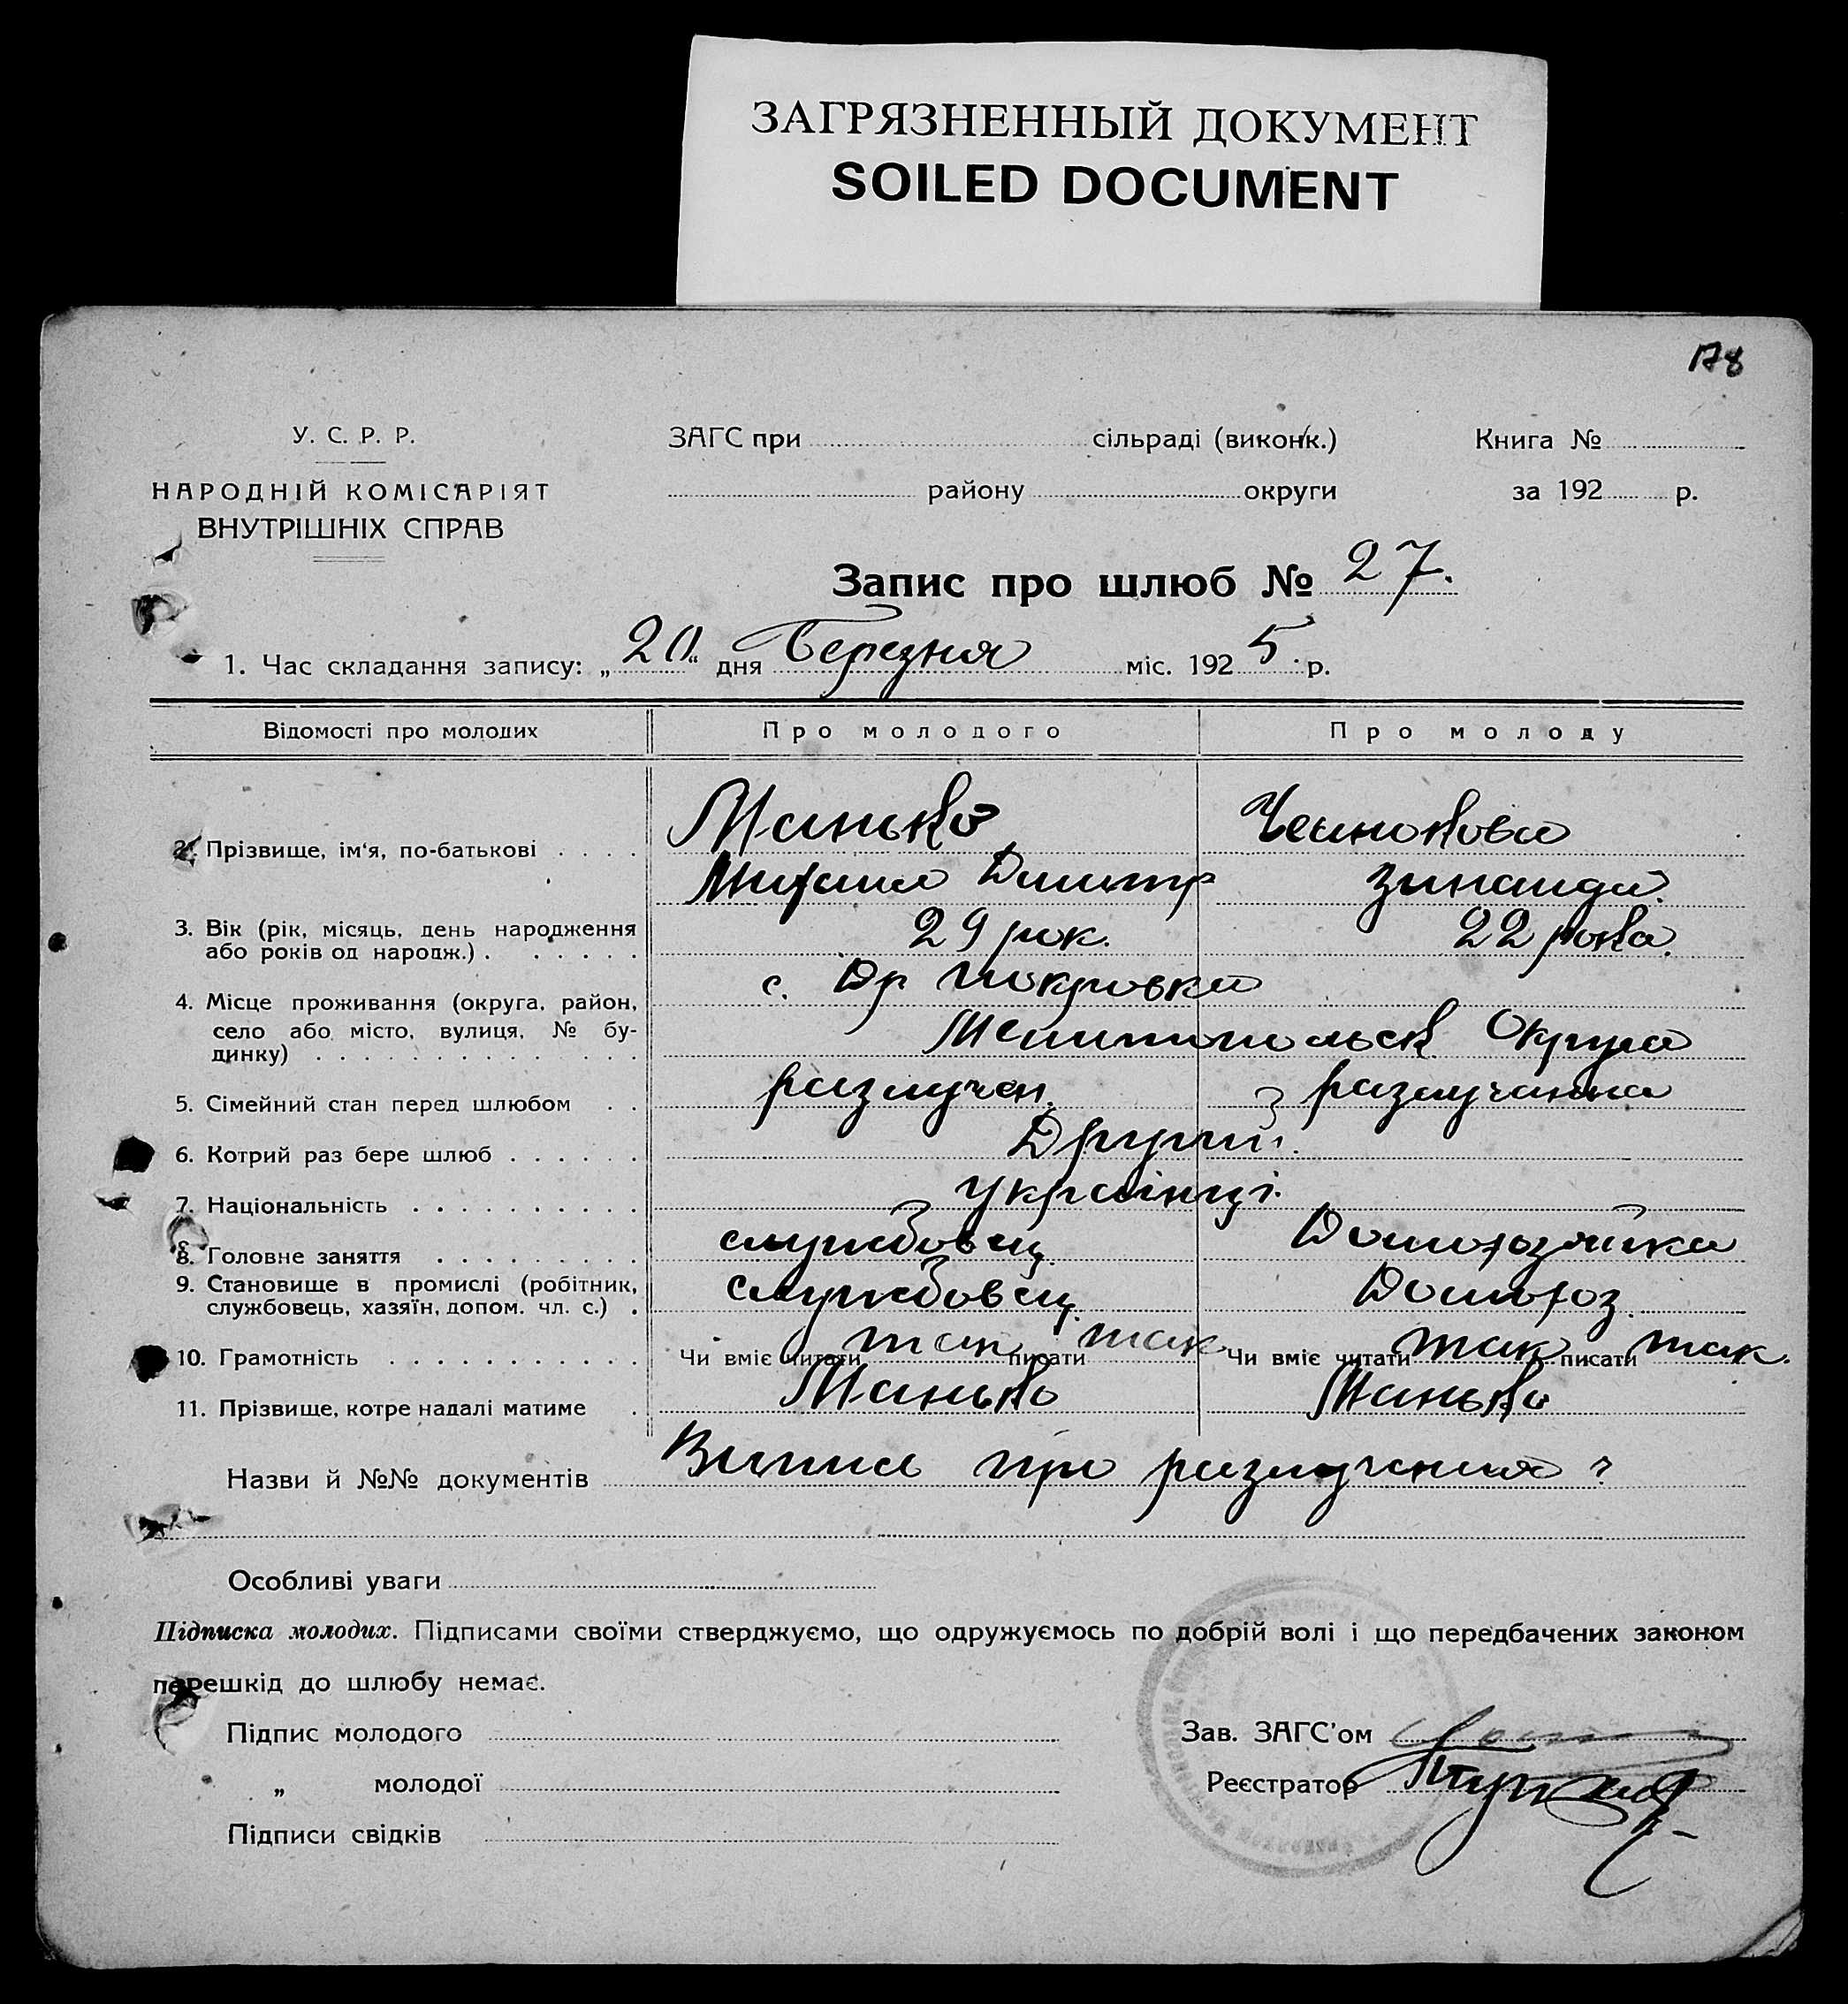 ЗАГРЯЗНЕННЫЙ ДОКУМЕНТ
SOILED DOCUMENT
178
У. С. Р. Р.
НАРОДНІЙ КОМІСАРІЯТ
ВНУТРІШНІХ СПРАВ
ЗАГС при сільраді (виконк.)
району округи
Книга №
за 192 р.
Запис про шлюб № 27.
1. Час складання запису: „20" дня Березня міс. 1925 р.
Відомості про молодих Про молодого Про молоду
2. Прізвище, ім'я, по-батькові . . . . Манько
Михаил Дмитр
Зинаида
3. Вік (рік, місяць, день народження
або років од народж.) . . . . . . 29 рок. 22 рока
4. Місце проживання (округа, район,
село або місто, вулиця, № бу-
динку) с. Др Покровка
Мелитопольск Округа
5. Сімейний стан перед шлюбом . . разлучен. разлучанна
6. Котрий раз бере шлюб . . . . . . Другий.
7. Національність . . . . . . . . . . українці.
8. Головне заняття . . . . . . . . . службовец Домохозяйка
9. Становище в промислі (робітник,
службовець, хазяїн, допом. чл. с.) . службовец. Домохоз.
10. Грамотність . . . . . . . . . . . Чи вміє читати так писати так Чи вміє читати так писати так.
11. Прізвище, котре надалі матиме . Манько Манько
Назви й №№ документів Випис про разлучения
Особливі уваги
Підписка молодих. Підписами своїми стверджуємо, що одружуємось по добрій волі і що передбачених законом
перешкід до шлюбу немає.
Підпис молодого
„ молодої
Підписи свідків
Зав. ЗАГС'ом
Реєстратор